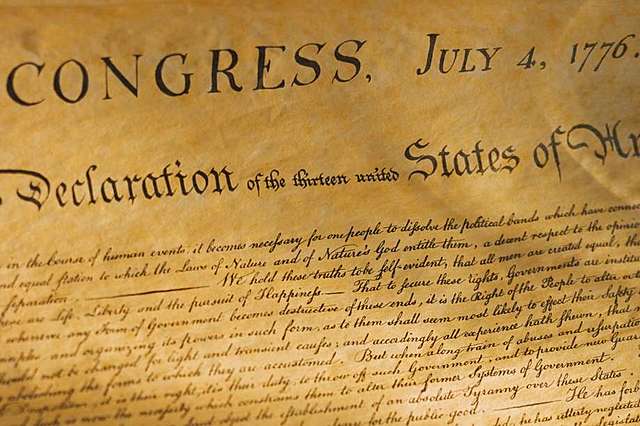 CONGRESS, JULY 4, 1776.
Declaration of the thirteen united States of
in the Course of human events, it becomes necessary for one people to dissolve the political bands which have
equal station to which the Laws of Nature and of Nature's God entitle them, a decent respect to the
separation. We hold these truths to be self-evident, that all men are created equal,
are Life, Liberty and the pursuit of Happiness. That to secure these rights, Governments are
whenever any Form of Government becomes destructive of these ends, it is the Right of the People to alter
and organizing its powers in such form, as to them shall seem most likely to effect their Safety
not be changed for light and transient causes; and accordingly all experience hath shewn, that
abolishing the forms to which they are accustomed. But when a long train of abuses and usurpations
it is their right, it is their duty, to throw off such Government, and to provide new
is now the necessity which constrains them to alter their former Systems of Government.
object the establishment of an absolute Tyranny over these States.
for the public good. He has
he has utterly neglected